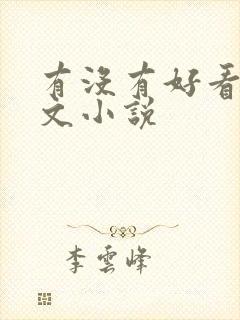 有没有好看
文小说
李云峰